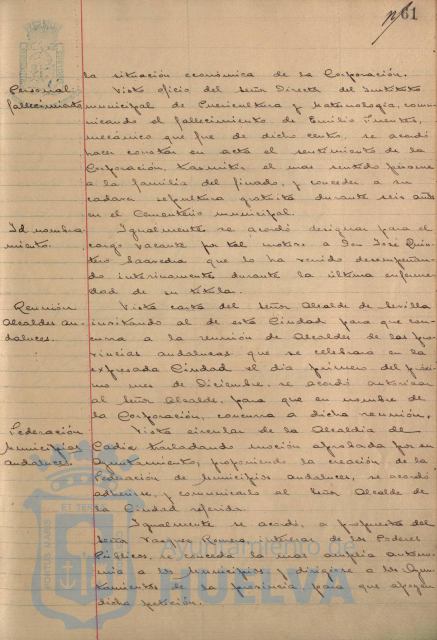 61
la situación económica de la Corporación.
Personal
fallecimiento
Visto oficio del Señor Director del Instituto
municipal de Puericultura y Maternología, comu-
nicando el fallecimiento de Emilio Fuentes,
mecánico que fue de dicho centro, se acordó
hacer constar en acta el sentimiento de la
Corporación, trasmitir el mas sentido pésame
a la familia del finado, y conceder a su
cadaver sepultura gratuita durante seis años
en el Cementerio municipal.
Id nombra
miento.
Igualmente se acordó designar para el
cargo vacante por tal motivo a Don José Quin-
tero Saavedra que lo ha venido desempeñan-
do interinamente durante la última enferme-
dad de su titular.
Reunión
Alcaldes an-
daluces.
Vista carta del Señor Alcalde de Sevilla
invitando al de esta Ciudad para que con-
curra a la reunión de Alcaldes de las pro-
vincias andaluzas que se celebrará en la
expresada Ciudad el dia primero del próxi-
mo mes de Diciembre, se acordó autorizar
al Señor Alcalde, para que en nombre de
la Corporación, concurra a dicha reunión.
Federación
Municipios
andaluces.
Vista circular de la Alcaldia de
Cadiz trasladando moción aprobada por su
Ayuntamiento, proponiendo la creación de la
Federación de Municipios andaluces, se acordó
adherirse, y comunicarlo al Señor Alcalde de
la Ciudad referida.
Igualmente se acordó, a propuesta del
Señor Vazquez Romero, interesar de los Poderes
Públicos, se conceda la mas amplia autono-
mia a los municipios y dirigirse a los Ayun-
tamientos de la provincia, para que apoyen
dicha petición.
Ayuntamiento de
HUELVA